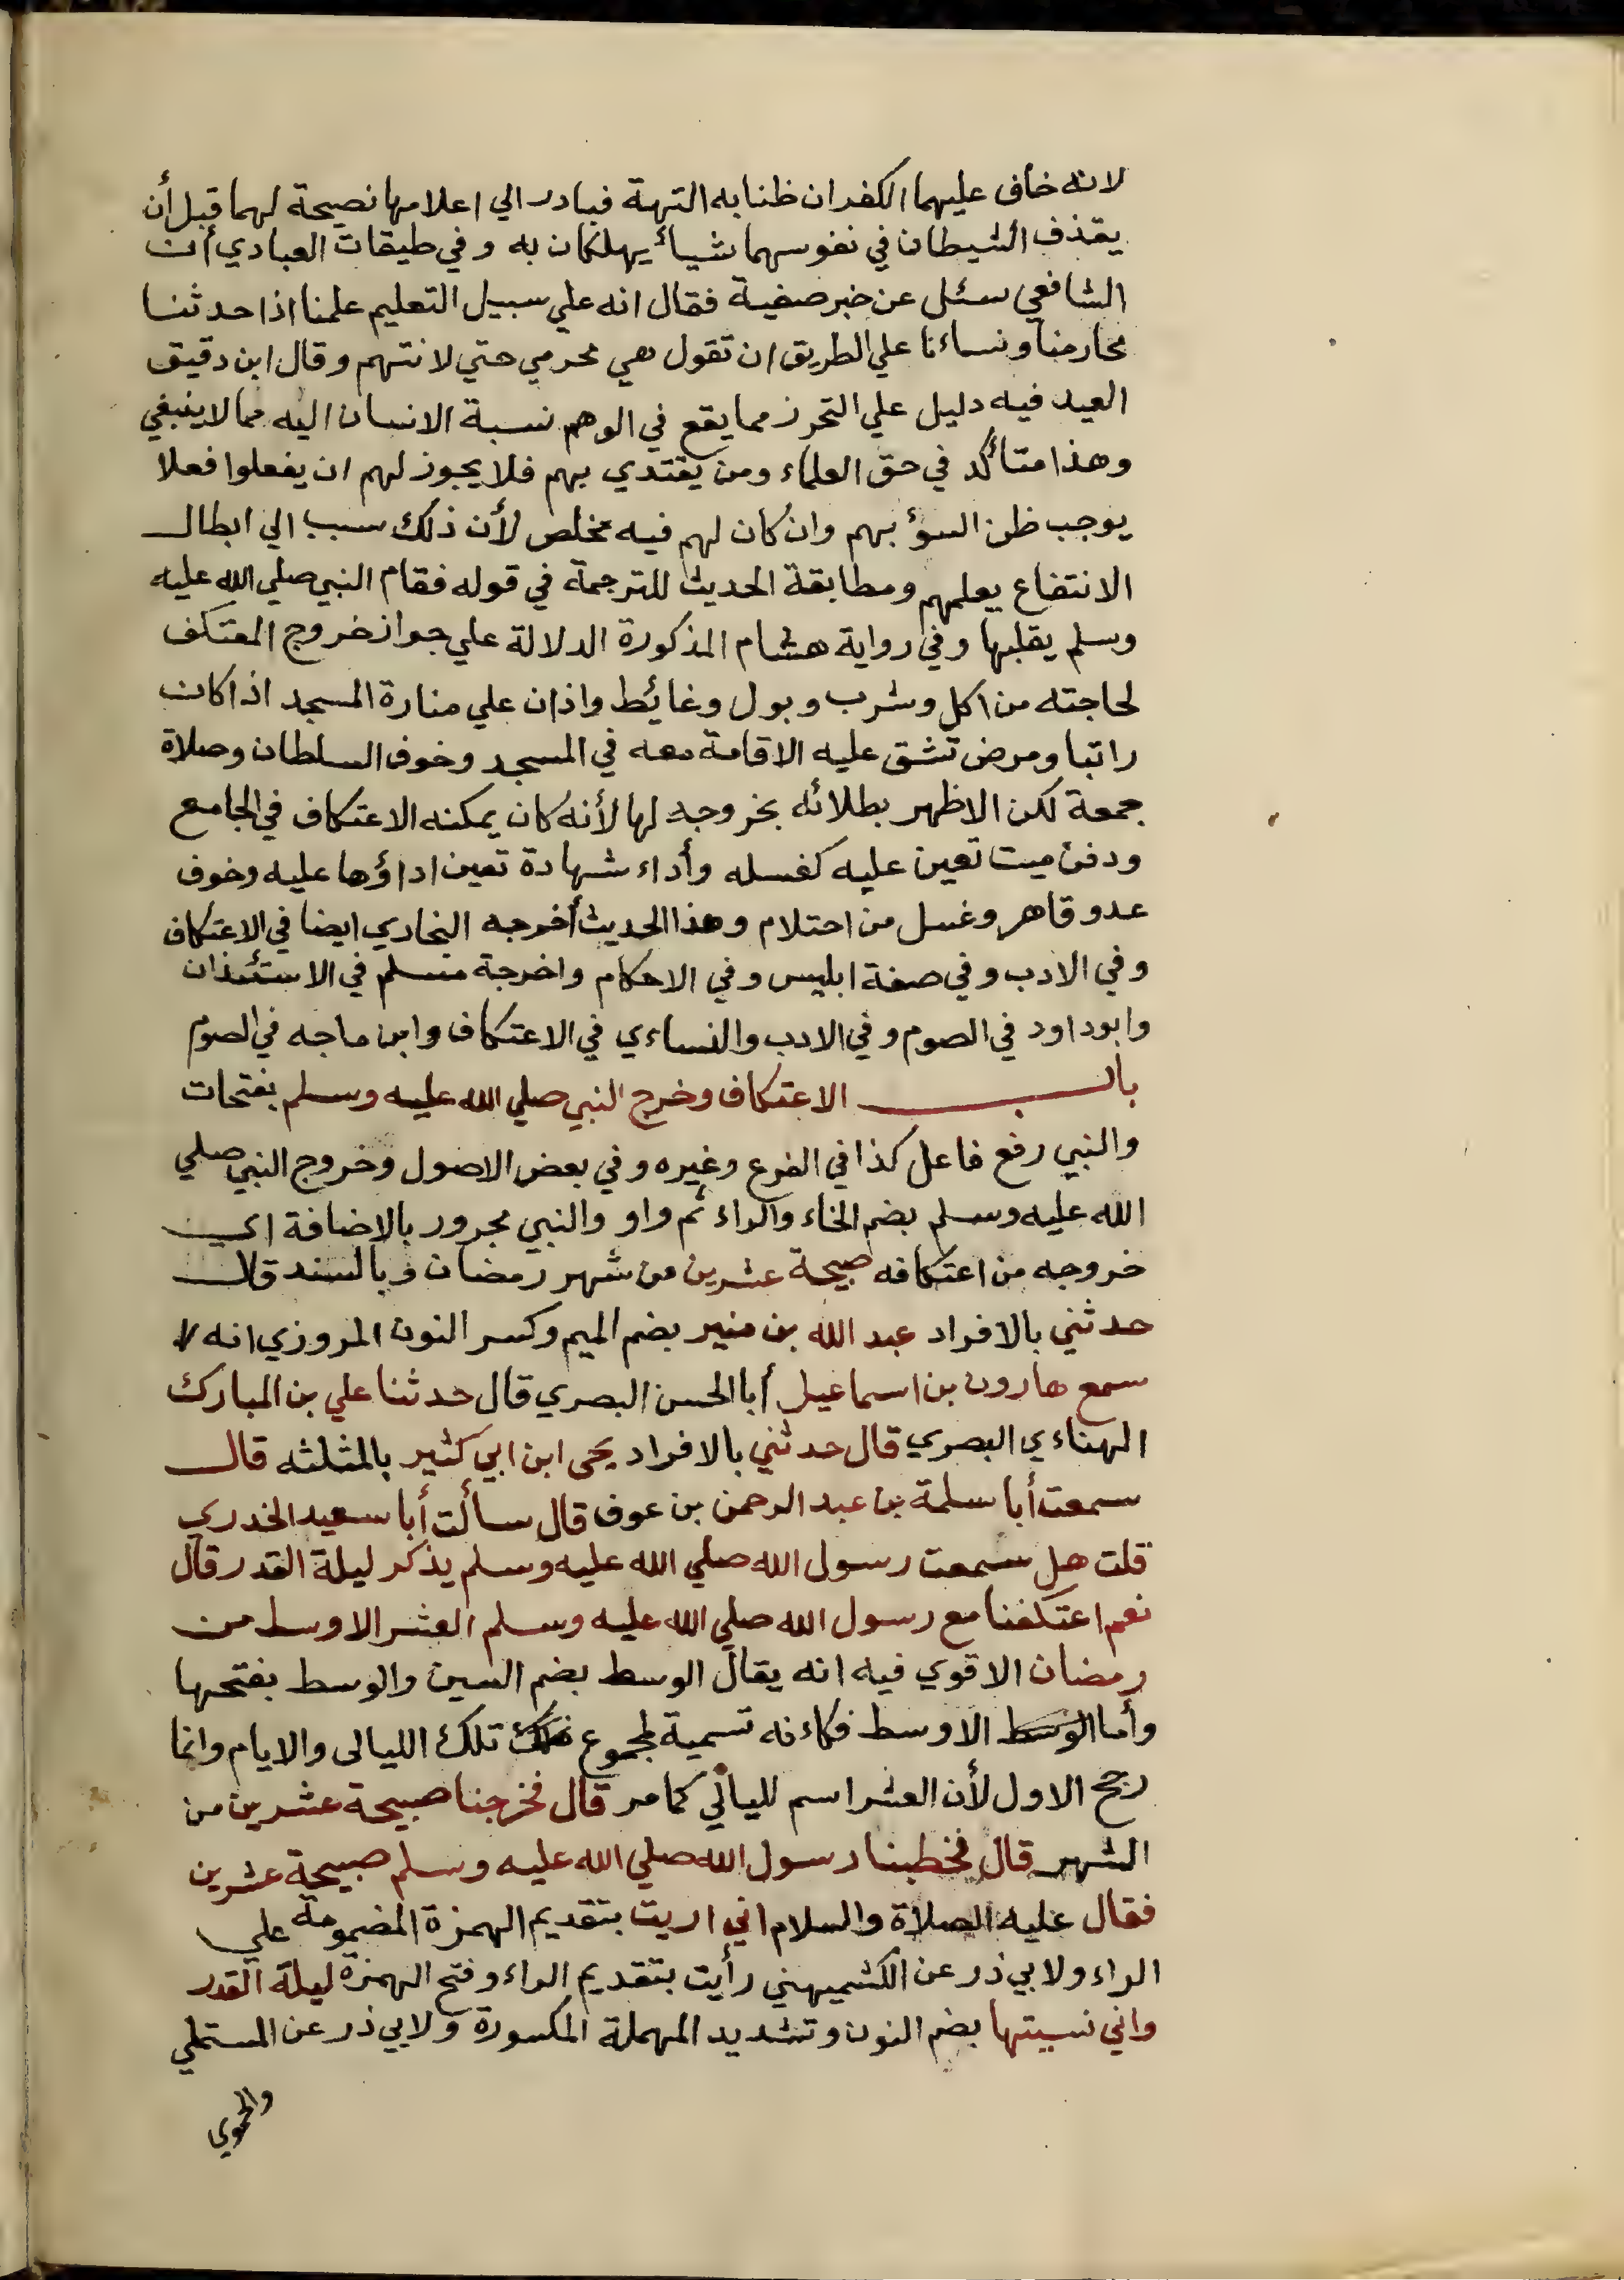 لانه خاف عليهما الكفر ان ظنا به التهمة فبادر الي اعلامها نصيحة لهما قبل أن
يقذف الشيطان في نفوسهما شيأ يهلكان به وفي طبقات العبادي أن
الشافعي سئل عن خبر صفية فقال انه علي سبيل التعليم علمنا اذا حدثنا
محارمنا ونساءنا علي الطريق ان تقول هي محرمي حتي لا نتهم وقال ابن دقيق
العيد فيه دليل علي التحرز مما يقع في الوهم نسبة الانسان اليه مما لا ينبغي
وهذا متأكد في حق العلماء ومن يقتدي بهم فلا يجوز لهم ان يفعلوا فعلا
يوجب ظن السوٴ بهم وان كان لهم فيه مخلص لأن ذلك سبب الي ابطال
الانتفاع بعلمهم ومطابقة الحديث للترجمة في قوله فقام النبي صلي الله عليه
وسلم يقلبها وفي رواية هشام المذكورة الدلالة علي جواز خروج المعتكف
لحاجته من اكل وشرب وبول وغائط واذان علي منارة المسجد اذا كان
راتبا ومرض تشق عليه الاقامة معه في المسجد وخوف السلطان وصلاة
جمعة لكن الاظهر بطلائه بخروجه لها لأنه كان يمكنه الاعتكاف في الجامع
ودفن ميت تعين عليه كغسله وأداء شهادة تعين اداؤها عليه وخوف
عدو قاهر وغسل من احتلام وهذا الحديث أخرجه البخاري ايضا في الاعتكاف
وفي الادب وفي صفة ابليس وفي الاحكام واخرجة مسلم في الاستئذان
وابوداود في الصوم وفي الادب والنساءي في الاعتكاف وابن ماجه في الصوم
باب الاعتكاف وخرج النبي صلي الله عليه وسلم بفتحات
والنبي رفع فاعل كذا في الفرع وغيره وفي بعض الاصول وخروج النبي صلي
الله عليه وسلم بضم الخاء والراء ثم واو والنبي مجرور بالاضافة اي
خروجه من اعتكافه صبيحة عشرين من شهر رمضان وبالسند قال
حدثني بالافراد عبد الله بن منير بضم الميم وكسر النون المروزي انه
سمع هارون بن اسماعيل أبا الحسن البصري قال حدثنا علي بن المبارك
الهناءي البصري قال حدثني بالافراد يحيى ابن ابي كثير بالمثلثه قال
سمعت أبا سلمة بن عبد الرحمن بن عوف قال سألت أبا سعيد الخدري
قلت هل سمعت رسول الله صلي الله عليه وسلم يذكر ليلة القدر قال
نعم اعتكفنا مع رسول الله صلي الله عليه وسلم العشر الاوسط من
رمضان الاقوي فيه انه يقال الوسط بضم السين والوسط بفتحها
وأما الوسط الاوسط فكاءنه تسمية لمجموع تلك الليالى والايام وانما
رجح الاول لأن العشر اسم لليالي كما مر قال فخرجنا صبيحة عشرين من
الشهر قال فخطبنا رسول الله صلي الله عليه وسلم صبيحة عشرين
فقال عليه الصلاة والسلام اني اريت بتقديم الهمزة المضمومة علي
الراء ولابي ذر عن الكشميهني رأيت بتقديم الراء وفتح الهمزة ليلة القدر
واني نسيتها بضم النون وتشديد المهملة المكسورة ولابي ذر عن المستملي
والحموي